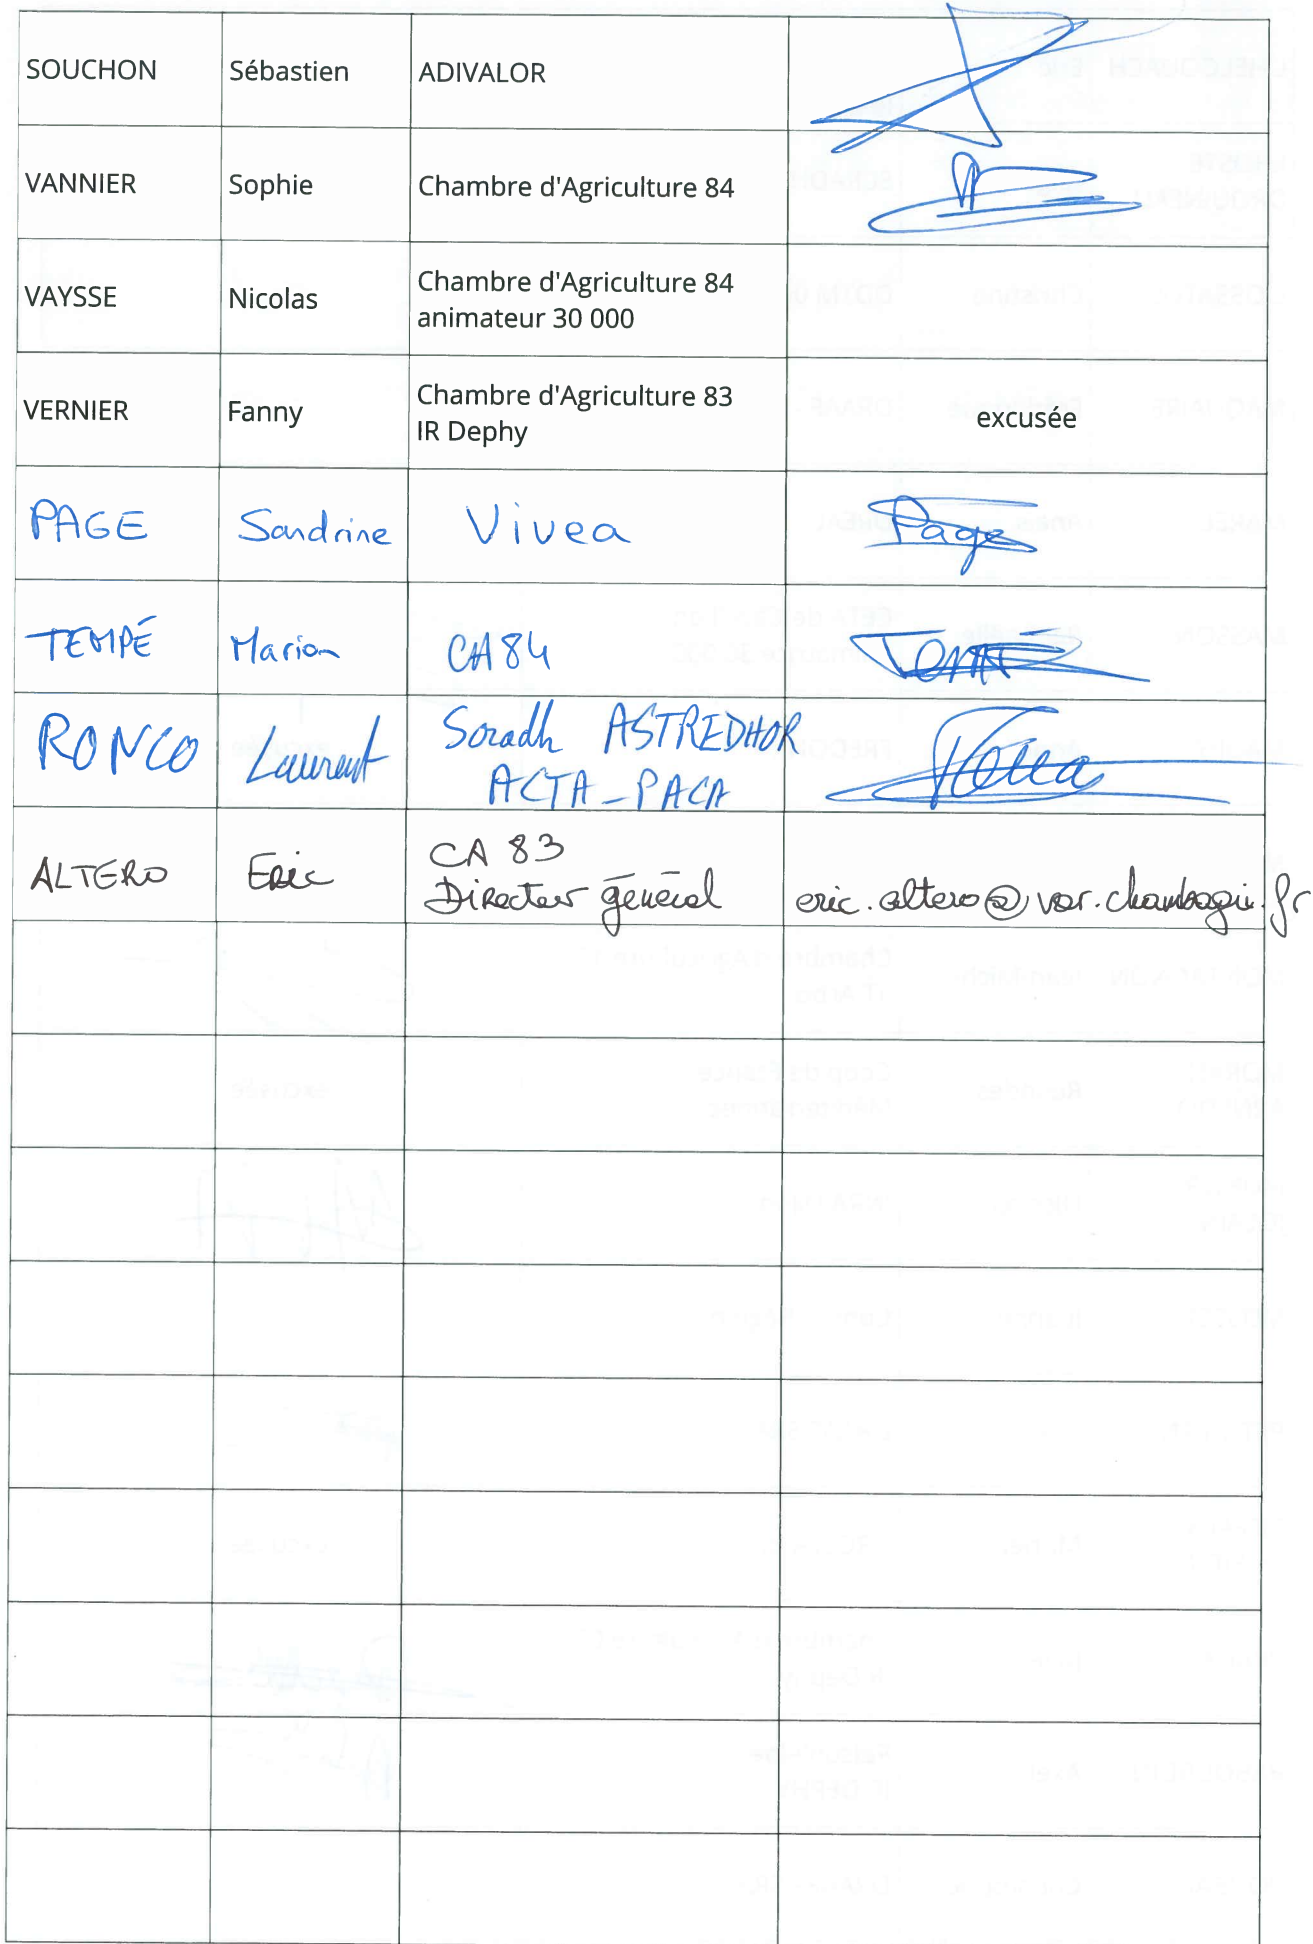 SOUCHON Sébastien ADIVALOR
VANNIER Sophie Chambre d'Agriculture 84
VAYSSE Nicolas Chambre d'Agriculture 84
animateur 30 000
VERNIER Fanny Chambre d'Agriculture 83
IR Dephy excusée
PAGE Sandrine Vivea Page
TEMPÉ Marion CA84
RONCO Laurent Scradh ASTREDHOR
ACTA-PACA
ALTERO Eric CA 83
Directeur général eric.altero@var.chambagri.fr